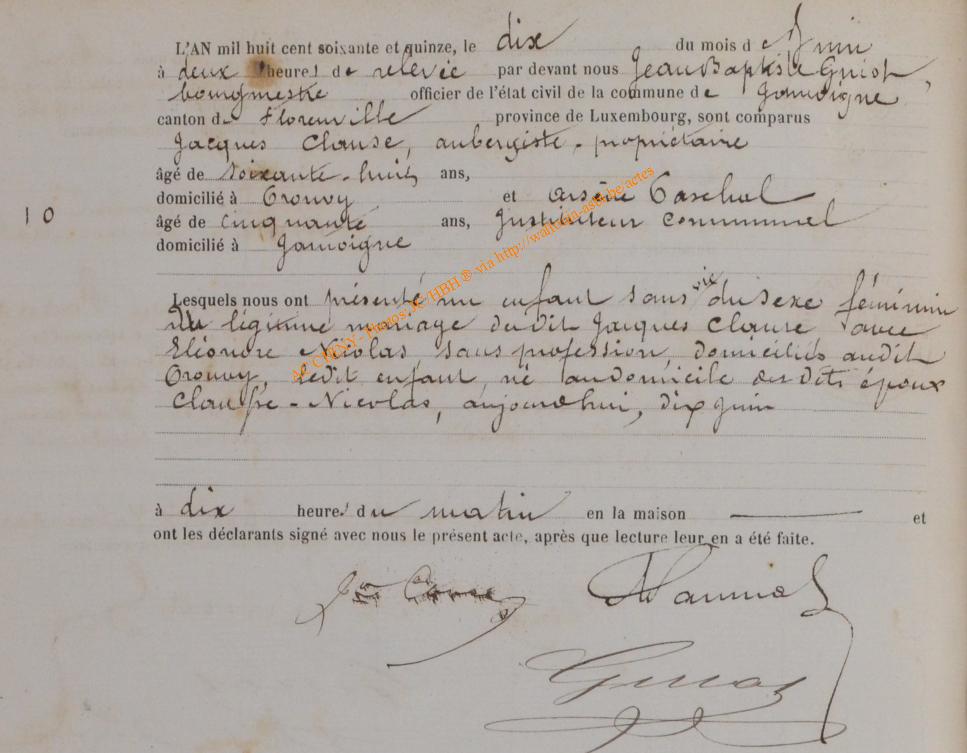 L'AN mil huit cent soixante et quinze, le dix du mois de Juin
à deux heures de relevée par devant nous Jean Baptiste Guiot,
bourgmestre officier de l'état civil de la commune de Jamoigne
canton de Florenville province de Luxembourg, sont comparus
Jacques Clausse, aubergiste-propriétaire
âgé de soixante-huit ans,
domicilié à Prouvy et Arsène
âgé de cinquante ans, Instituteur communal
10
domicilié à Jamoigne
Lesquels nous ont présenté un enfant sans vie du sexe féminin
du légitime mariage dudit Jacques Clausse avec
Eléonore Nicolas, sans profession, domiciliés audit
Prouvy, ledit enfant, né au domicile des dits époux
Clausse-Nicolas, aujourd'hui, dix juin
à dix heures du matin en la maison et
ont les déclarants signé avec nous le présent acte, après que lecture leur en a été faite.
Guiot
AC CHINY - Photos JC/HBH ® via http://wallonia-asbl.be/actes